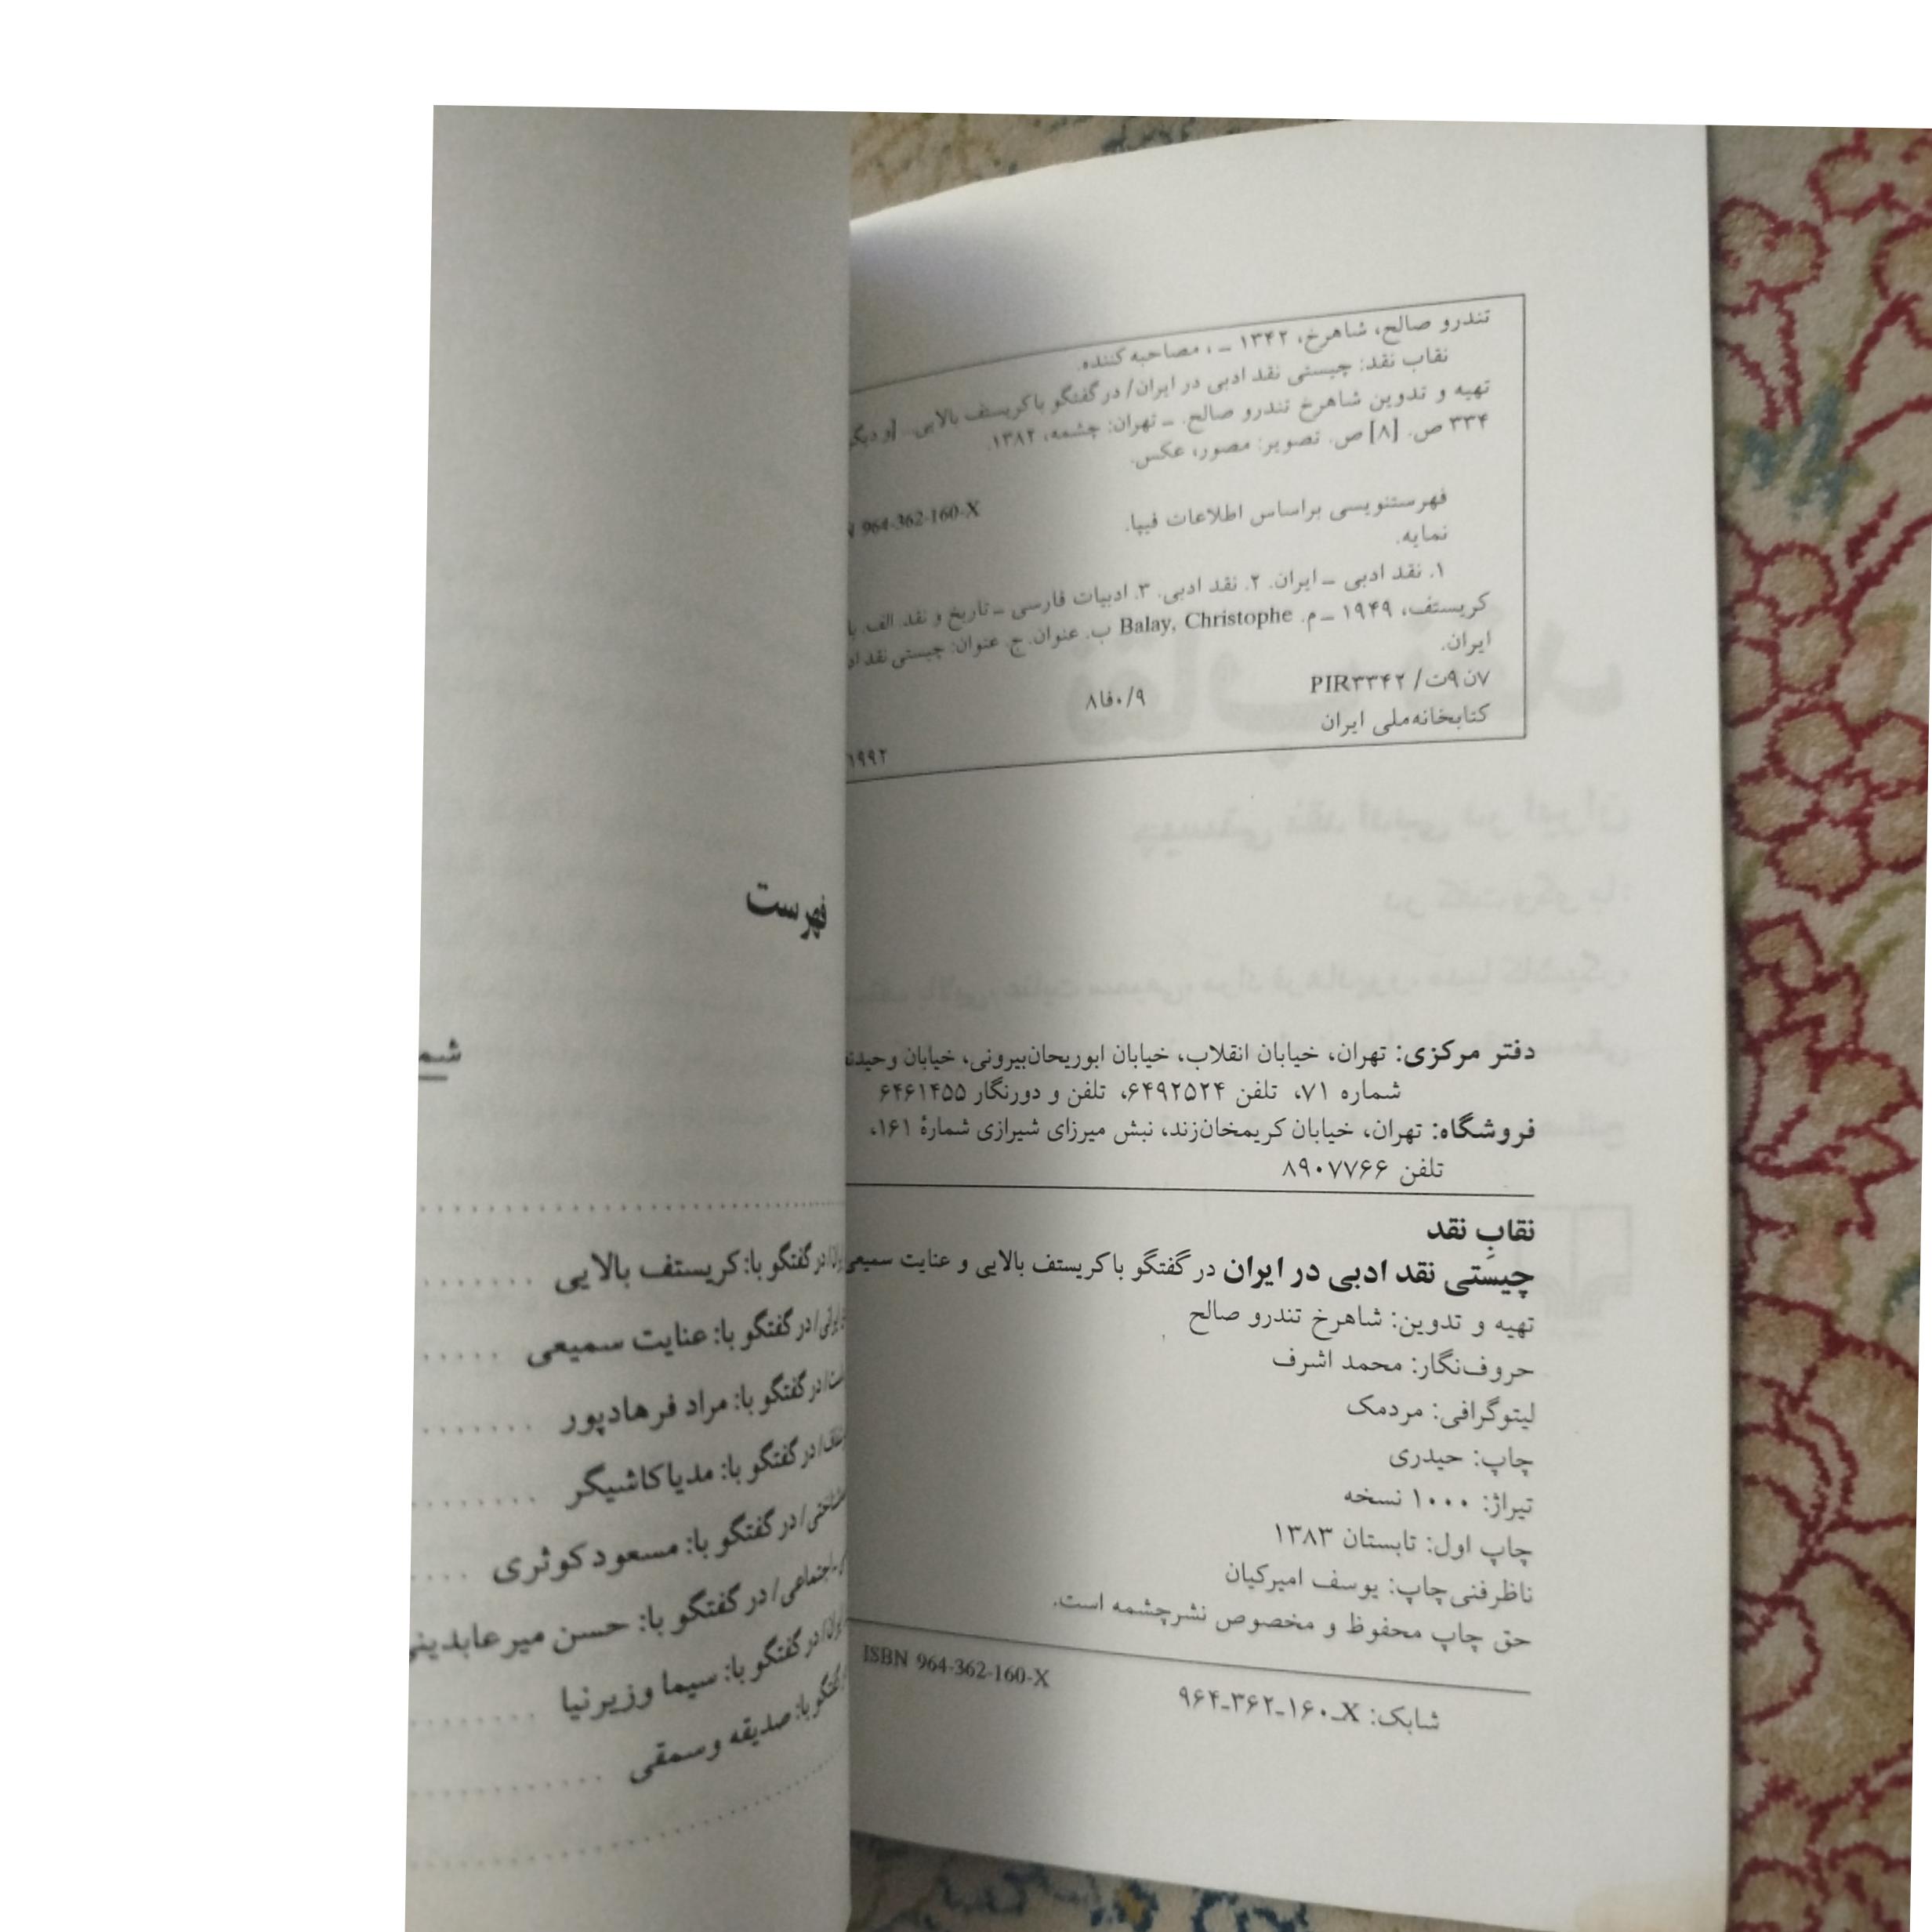 تندرو صالح، شاهرخ، ۱۳۴۲ ـ ، مصاحبه کننده.
نقاب نقد: چیستی نقد ادبی در ایران/ در گفتگو با کریستف بالایی... [و دیگر
تهیه و تدوین شاهرخ تندرو صالح. ـ تهران: چشمه، ۱۳۸۲.
۳۳۴ ص. [۸] ص. تصویر: مصور، عکس.
964-362-160-X
فهرستنویسی براساس اطلاعات فیپا.
نمایه.
۱. نقد ادبی ـ ایران. ۲. نقد ادبی. ۳. ادبیات فارسی ـ تاریخ و نقد. الف.
کریستف، ۱۹۴۹ ـ م. Balay, Christophe ب. عنوان. ج. عنوان: چیستی نقد
ایران.
۷ن۹ت/ PIR۳۳۴۲
۸فا۰/۹
کتابخانه‌ملی ایران
۱۹۹۲
دفتر مرکزی: تهران، خیابان انقلاب، خیابان ابوریحان‌بیرونی، خیابان
شماره ۷۱، تلفن ۶۴۹۲۵۲۴، تلفن و دورنگار ۶۴۶۱۴۵۵
فروشگاه: تهران، خیابان کریمخان‌زند، نبش میرزای شیرازی شمارهٔ ۱۶۱،
تلفن ۸۹۰۷۷۶۶
نقابِ نقد
چیستی نقد ادبی در ایران در گفتگو با کریستف بالایی و عنایت سمیعی
تهیه و تدوین: شاهرخ تندرو صالح
حروف‌نگار: محمد اشرف
لیتوگرافی: مردمک
چاپ: حیدری
تیراژ: ۱۰۰۰ نسخه
چاپ اول: تابستان ۱۳۸۳
ناظرفنی‌چاپ: یوسف امیرکیان
حق چاپ محفوظ و مخصوص نشرچشمه است.
ISBN 964-362-160-X
شابک: X-۱۶۰-۳۶۲-۹۶۴
فهرست
در گفتگو با: کریستف بالایی
/ در گفتگو با: عنایت سمیعی
/ در گفتگو با: مراد فرهادپور
/ در گفتگو با: مدیا کاشیگر
/ در گفتگو با: مسعود کوثری
اجتماعی/ در گفتگو با: حسن میرعابدینی
/ در گفتگو با: سیما وزیرنیا
گفتگو با: صدیقه وسمقی